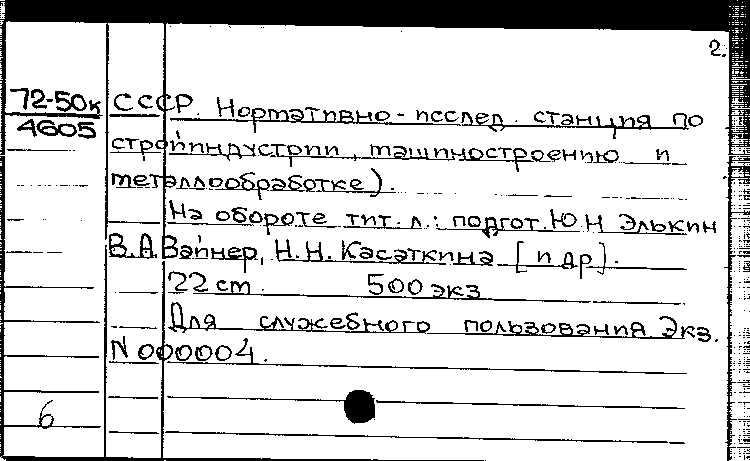 2.
72-50к СССР. Нормативно-исслед. станция по
4605
стройиндустрии, машиностроению и
металлообработке).
На обороте тит. л.: подгот. Ю.Н Элькин
В.А Вайнер, Н.Н. Касаткина [и др].
22 cm. 500 экз
Для служебного пользования. Экз.
N 000004.
6